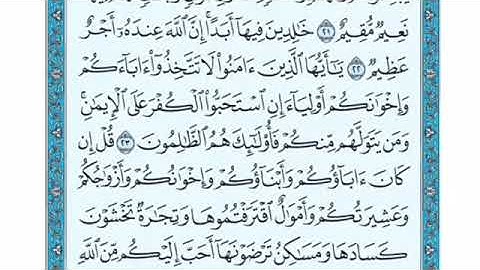 نَعِيمٌ مُّقِيمٌ ٢١ خَٰلِدِينَ فِيهَآ أَبَدًا إِنَّ ٱللَّهَ عِندَهُۥٓ أَجْرٌ
عَظِيمٌ ٢٢ يَٰٓأَيُّهَا ٱلَّذِينَ ءَامَنُوا۟ لَا تَتَّخِذُوٓا۟ ءَابَآءَكُمْ
وَإِخْوَٰنَكُمْ أَوْلِيَآءَ إِنِ ٱسْتَحَبُّوا۟ ٱلْكُفْرَ عَلَى ٱلْإِيمَٰنِ
وَمَن يَتَوَلَّهُم مِّنكُمْ فَأُو۟لَٰٓئِكَ هُمُ ٱلظَّٰلِمُونَ ٢٣ قُلْ إِن
كَانَ ءَابَآؤُكُمْ وَأَبْنَآؤُكُمْ وَإِخْوَٰنُكُمْ وَأَزْوَٰجُكُمْ
وَعَشِيرَتُكُمْ وَأَمْوَٰلٌ ٱقْتَرَفْتُمُوهَا وَتِجَٰرَةٌ تَخْشَوْنَ
كَسَادَهَا وَمَسَٰكِنُ تَرْضَوْنَهَآ أَحَبَّ إِلَيْكُم مِّنَ ٱللَّهِ